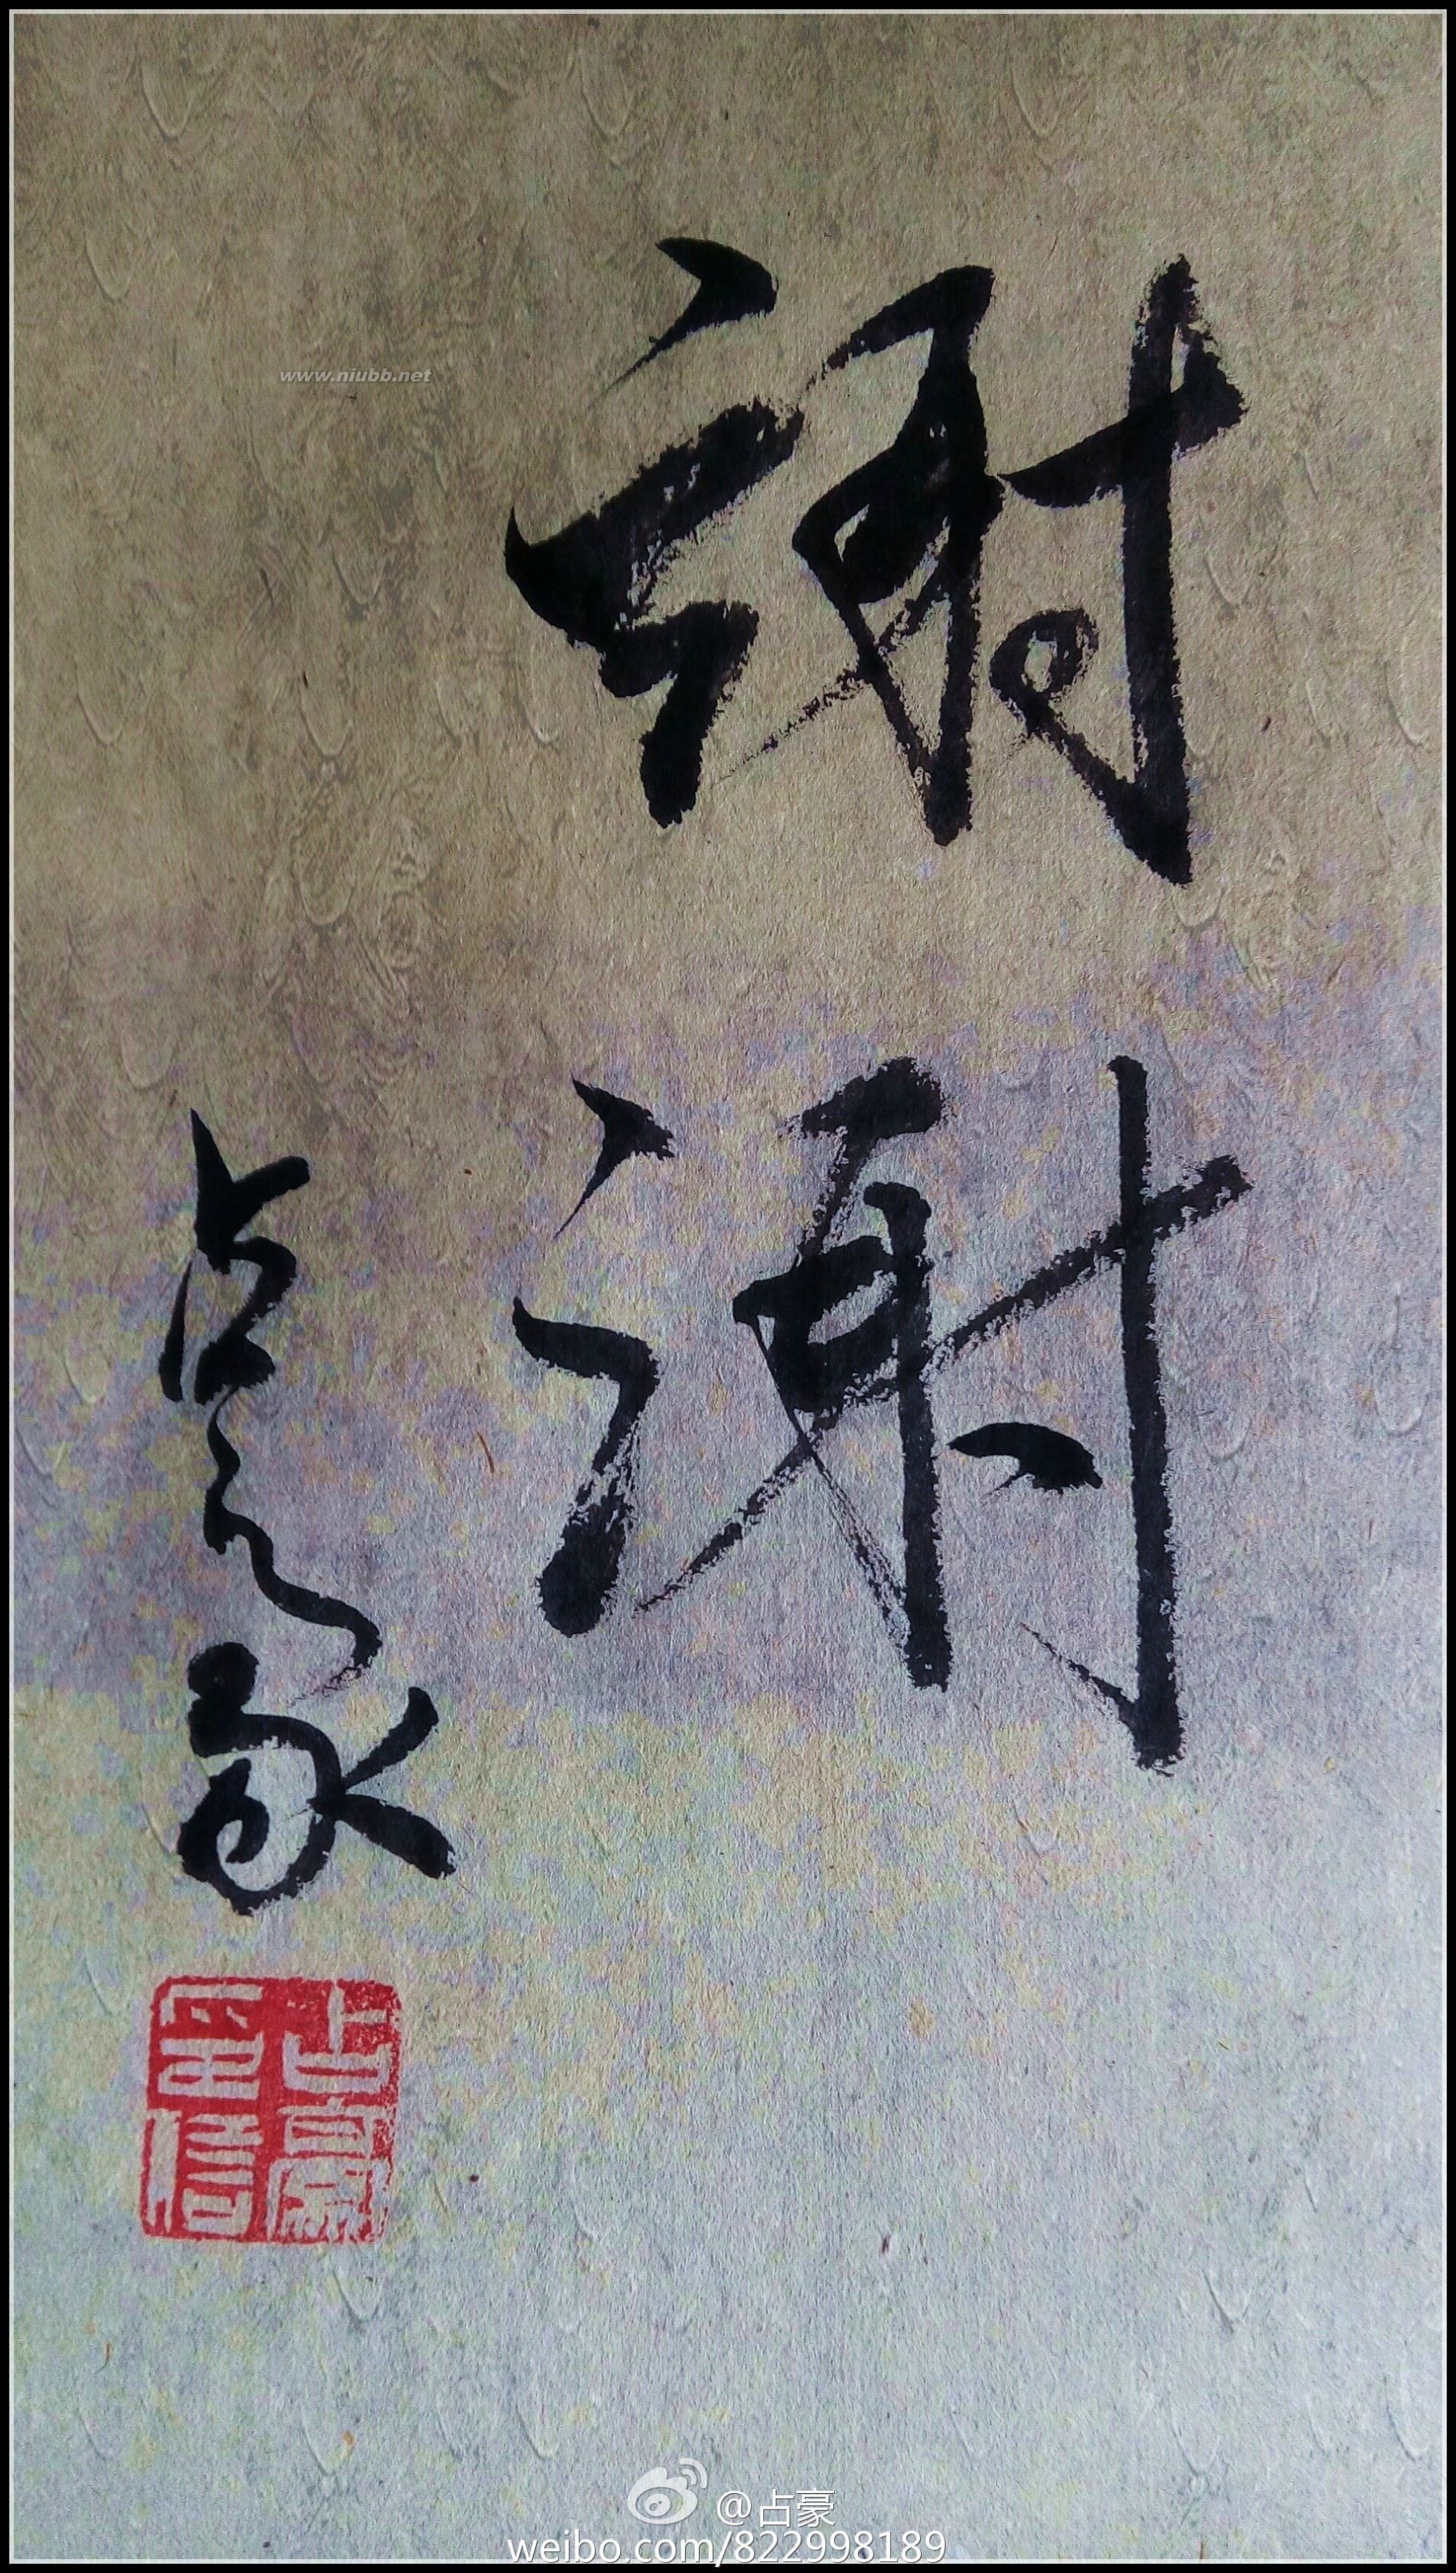 謝
謝
占豪
占豪
印信
www.niubb.net
@占豪
weibo.com/822998189